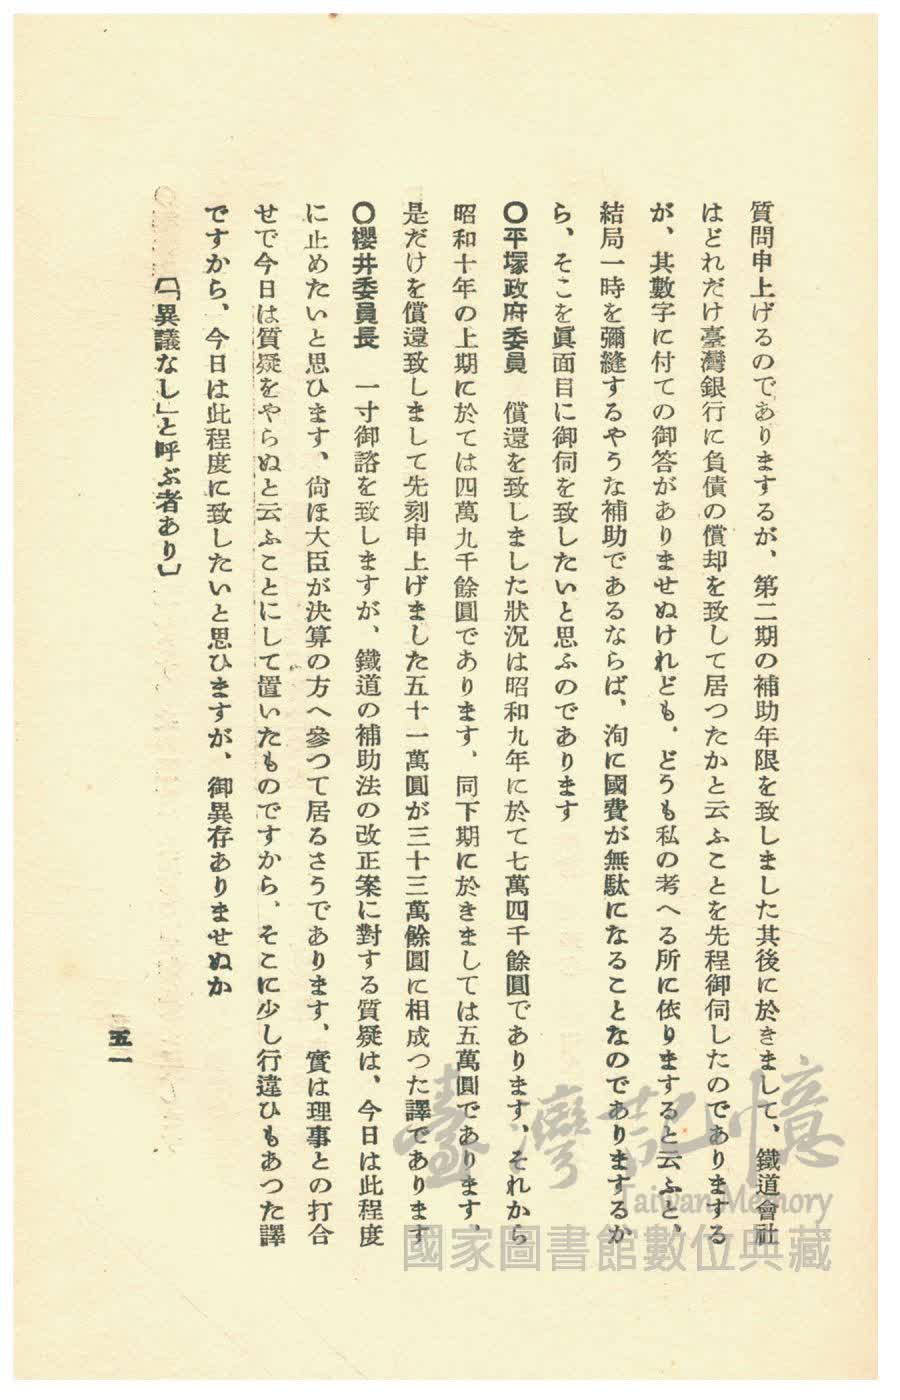 質問申上げるのでありまするが、第二期の補助年限を致しました其後に於きまして、鐵道會社
はどれだけ臺灣銀行に負債の償却を致して居つたかと云ふことを先程御伺したのでありまする
が、其數字に付ての御答がありませぬけれども、どうも私の考へる所に依りますると云ふと、
結局一時を彌縫するやうな補助であるならば、洵に國費が無駄になることなのでありまするか
ら、そこを眞面目に御伺を致したいと思ふのであります
〇平塚政府委員　償還を致しました狀況は昭和九年に於て七萬四千餘圓であります、それから
昭和十年の上期に於ては四萬九千餘圓であります、同下期に於きましては五萬圓であります、
是だけを償還致しまして先刻申上げました五十一萬圓が三十三萬餘圓に相成つた譯であります
〇櫻井委員長　一寸御諮を致しますが、鐵道の補助法の改正案に對する質疑は、今日は此程度
に止めたいと思ひます、尙ほ大臣が決算の方へ參つて居るさうであります、實は理事との打合
せで今日は質疑をやらぬと云ふことにして置いたものですから、そこに少し行違ひもあつた譯
ですから、今日は此程度に致したいと思ひますが、御異存ありませぬか
〔「異議なし」と呼ぶ者あり〕
五一
臺灣記憶
Taiwan Memory
國家圖書館數位典藏